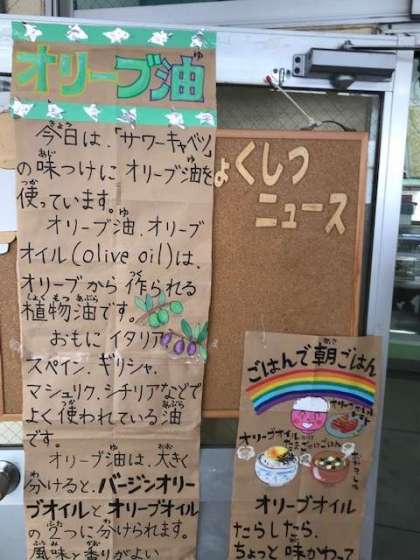 オリーブ油
今日は、「サワーキャベツ」
の味つけに オリーブ油を
使っています。
オリーブ油、オリーブ
オイル(olive oil)は、
オリーブから作られる
植物油です。
おもに イタリア
スペイン、ギリシャ、
マシュリク、シチリアなどで
よく使われている油
です。
オリーブ油は、大きく
分けると、バージンオリー
ブオイルとオリーブオイル
の2つに分けられます。
風味と香りがよい
ょくしつ
ニュース
ごはんで朝ごはん
オリーブオイル
たまごかけごはん
オリーブオイル
たらしたら、
ちょっと味がわっ?